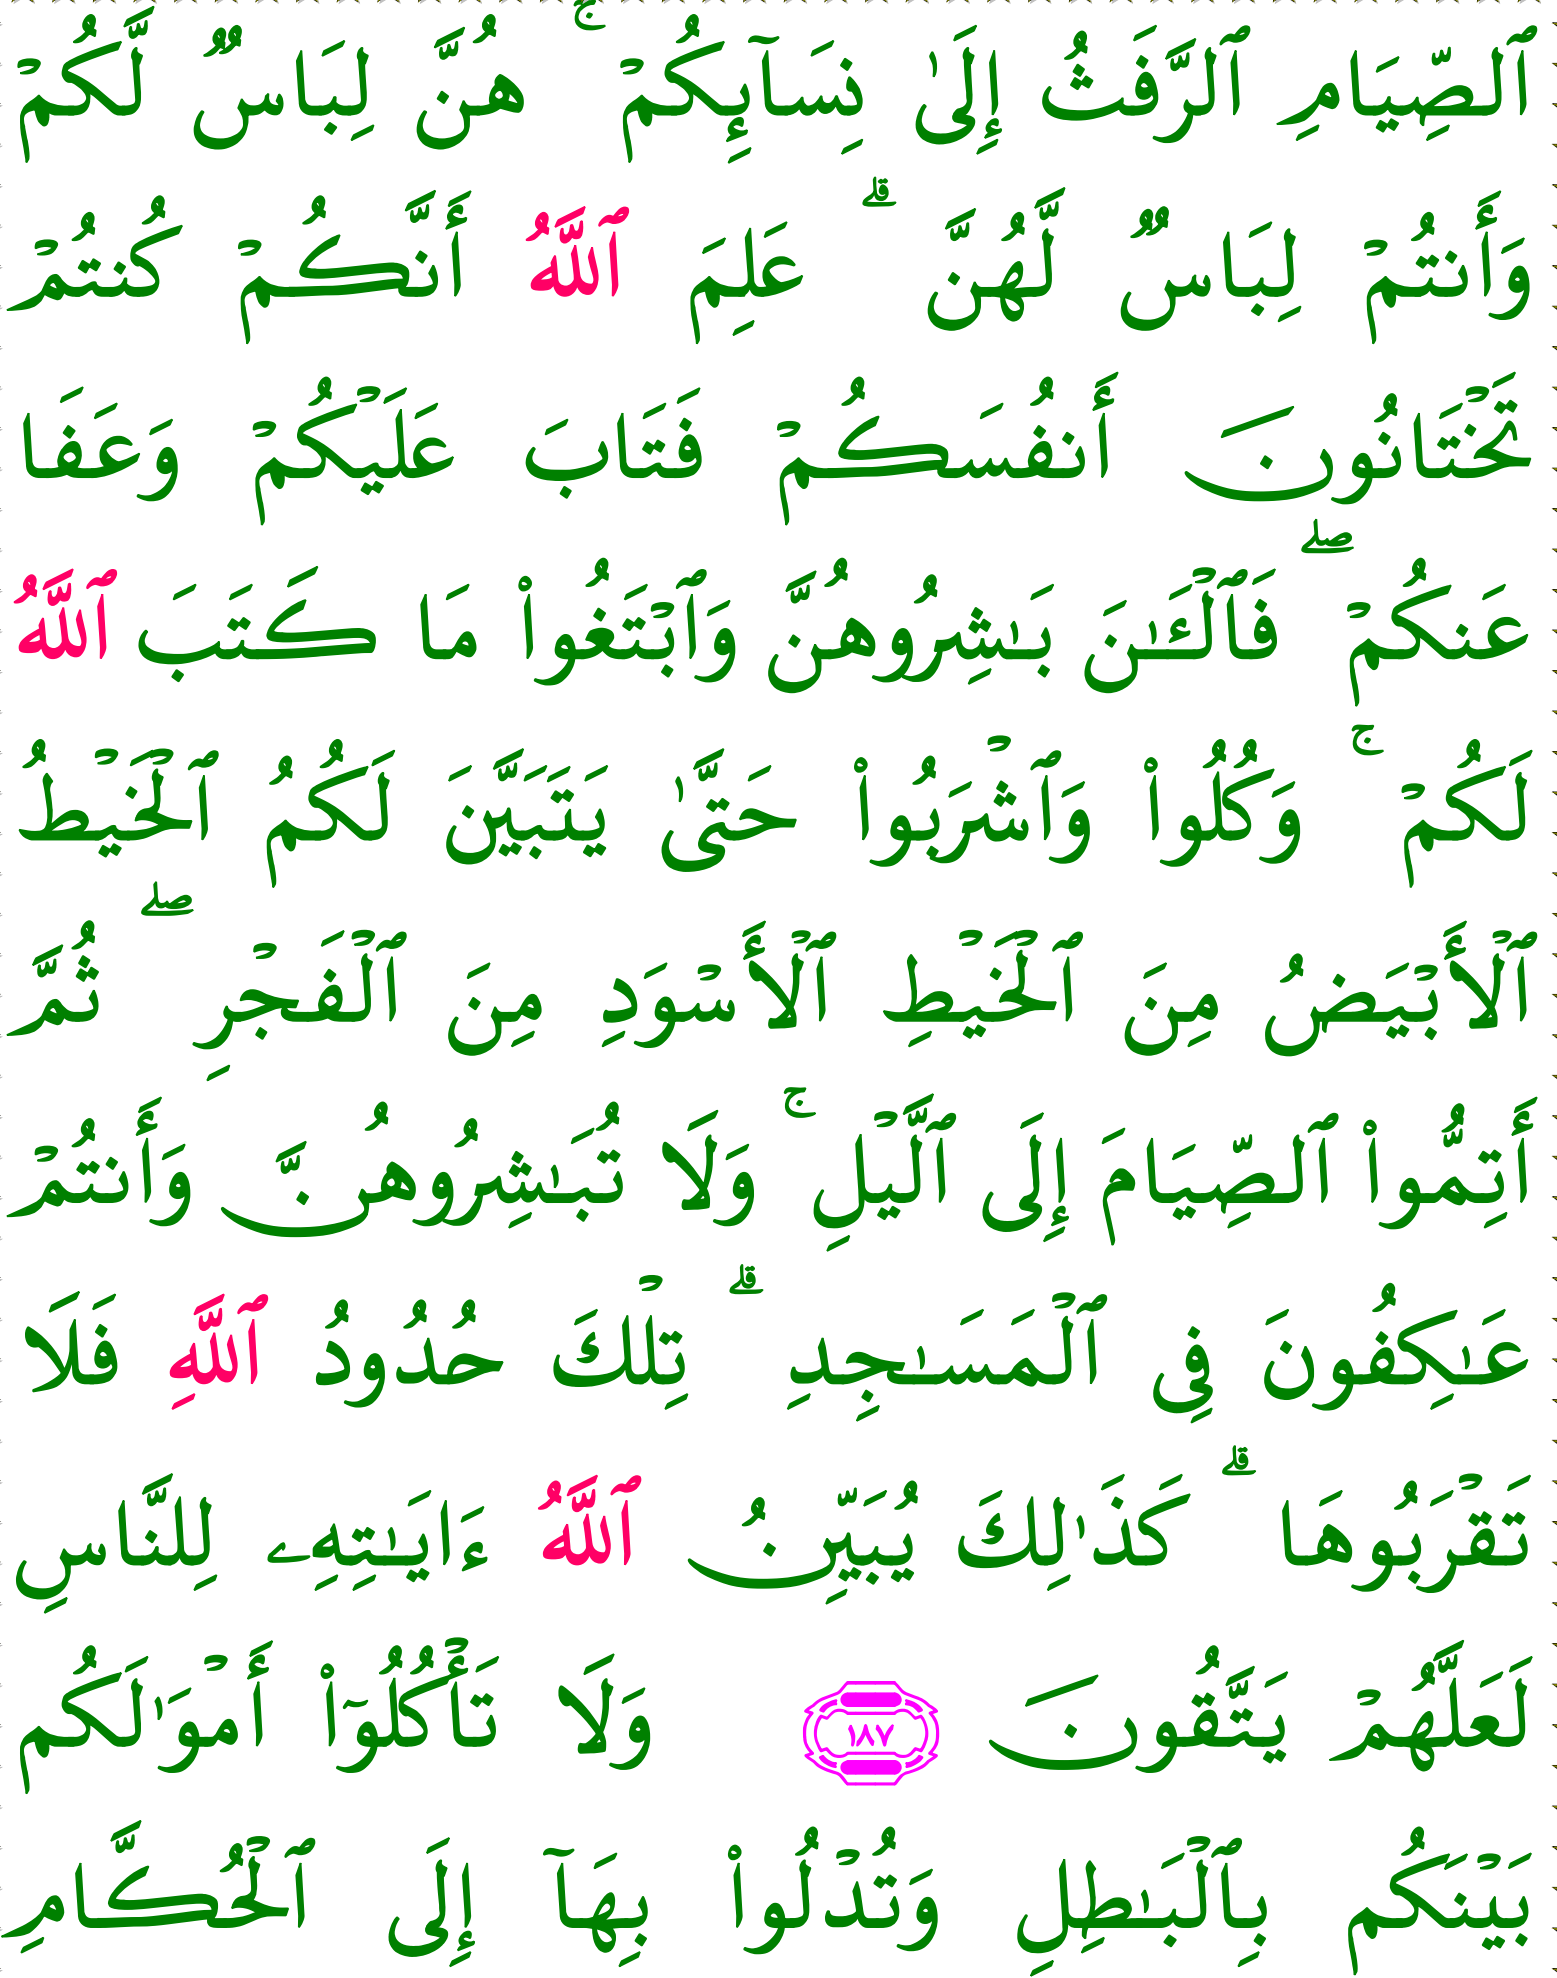 ٱلصِّيَامِ ٱلرَّفَثُ إِلَىٰ نِسَآئِكُمْ ۚ هُنَّ لِبَاسٌ لَّكُمْ
وَأَنتُمْ لِبَاسٌ لَّهُنَّ ۗ عَلِمَ ٱللَّهُ أَنَّكُمْ كُنتُمْ
تَخْتَانُونَ أَنفُسَكُمْ فَتَابَ عَلَيْكُمْ وَعَفَا
عَنكُمْ ۖ فَٱلْـَٰٔنَ بَـٰشِرُوهُنَّ وَٱبْتَغُوا۟ مَا كَتَبَ ٱللَّهُ
لَكُمْ ۚ وَكُلُوا۟ وَٱشْرَبُوا۟ حَتَّىٰ يَتَبَيَّنَ لَكُمُ ٱلْخَيْطُ
ٱلْأَبْيَضُ مِنَ ٱلْخَيْطِ ٱلْأَسْوَدِ مِنَ ٱلْفَجْرِ ۖ ثُمَّ
أَتِمُّوا۟ ٱلصِّيَامَ إِلَى ٱلَّيْلِ ۚ وَلَا تُبَـٰشِرُوهُنَّ وَأَنتُمْ
عَـٰكِفُونَ فِى ٱلْمَسَـٰجِدِ ۗ تِلْكَ حُدُودُ ٱللَّهِ فَلَا
تَقْرَبُوهَا ۗ كَذَٰلِكَ يُبَيِّنُ ٱللَّهُ ءَايَـٰتِهِۦ لِلنَّاسِ
لَعَلَّهُمْ يَتَّقُونَ ١٨٧ وَلَا تَأْكُلُوٓا۟ أَمْوَٰلَكُم
بَيْنَكُم بِٱلْبَـٰطِلِ وَتُدْلُوا۟ بِهَآ إِلَى ٱلْحُكَّامِ